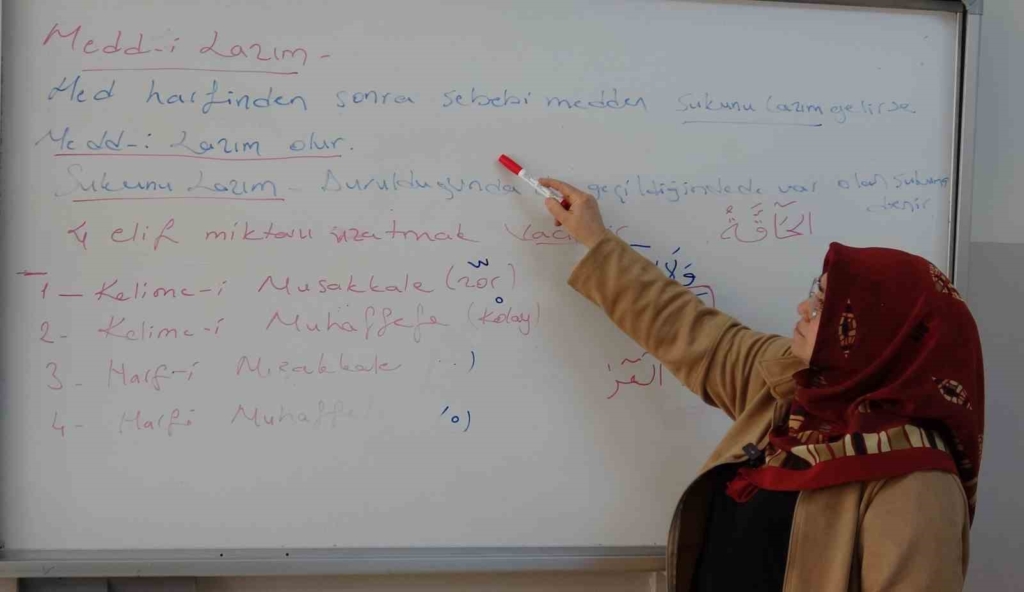 Medd-i Lazım -
Med harfinden sonra sebebi medden sukunu lazım gelirse
Medd-i Lazım olur.
Sukunu Lazım - Durulduğunda geçildiğindede var olan sukuna denir
4 elif miktarı uzatmak
اَلْحَاقَّةُ
1 - Kelime-i Musakkale (zor)
2 - Kelime-i Muhaffefe (kolay)
3 - Harf-i Musakkale )
4 - Harfi )